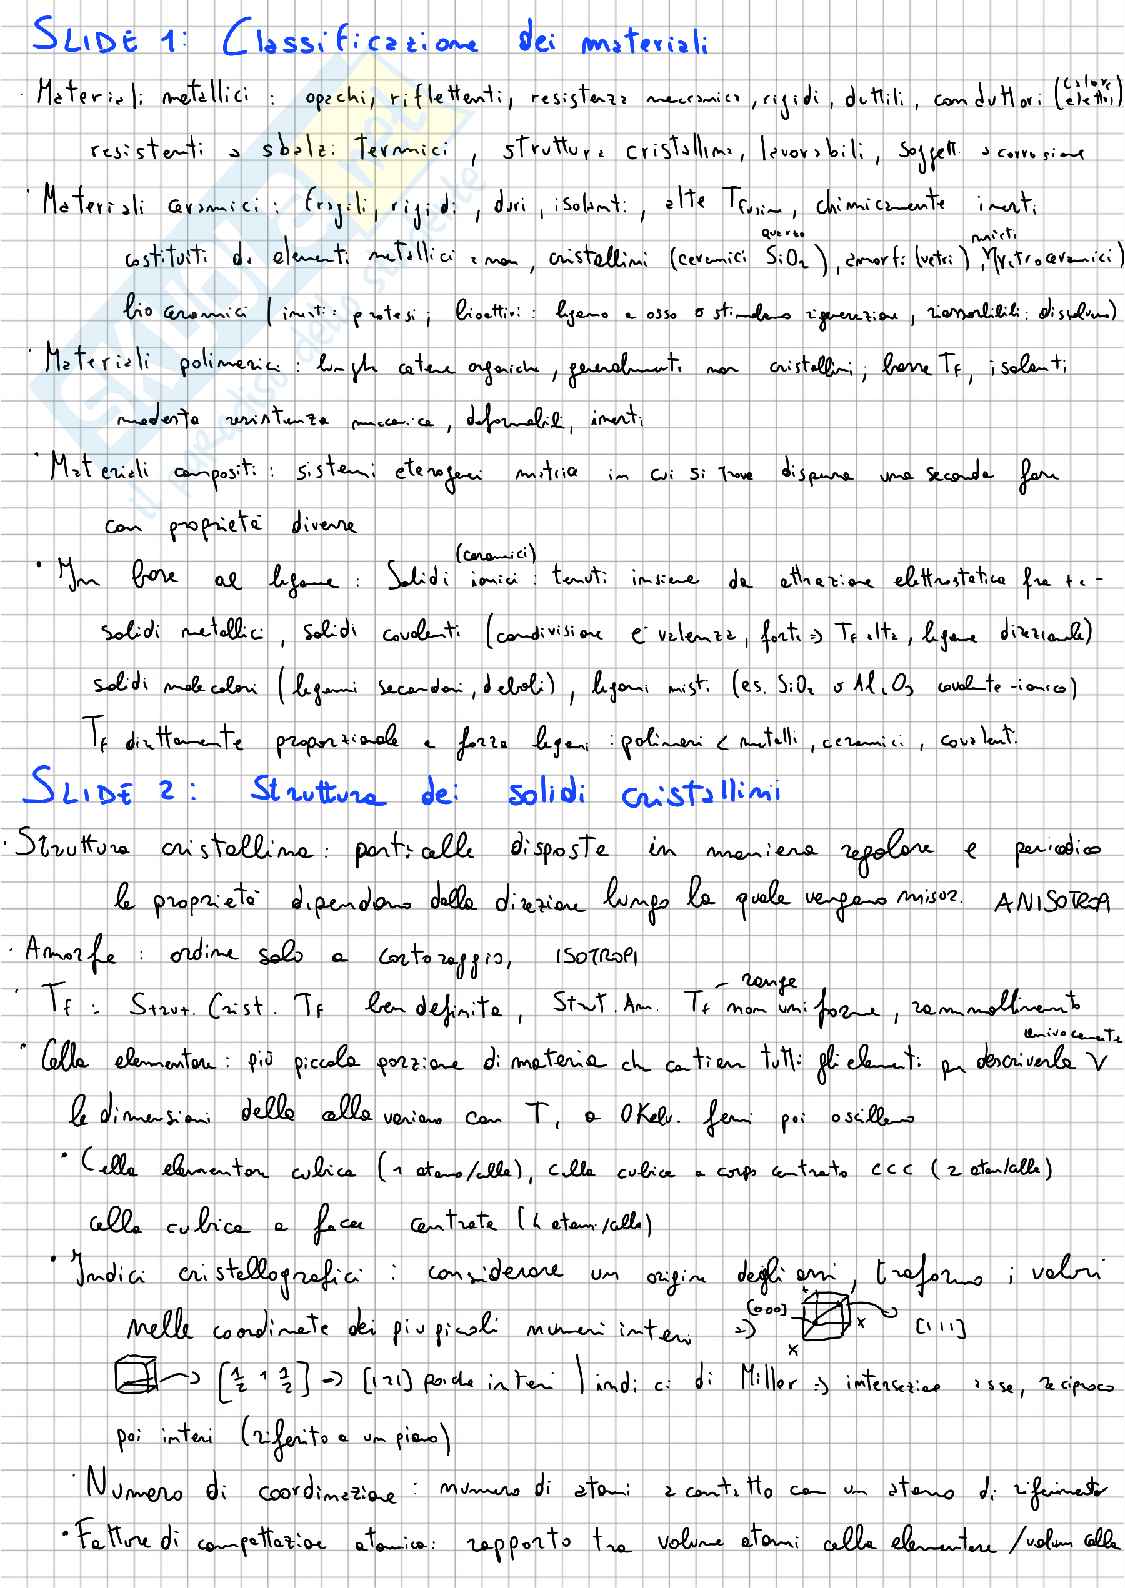 SLIDE 1: Classificazione dei materiali
· Materiali metallici : opachi, riflettenti, resistenza meccanica, rigidi, duttili, conduttori (calore elettrici)
resistenti a sbalzi termici, struttura cristallina, lavorabili, soggett. a corrosione
· Materiali ceramici : fragili, rigidi, duri, isolanti, alte Tfusione, chimicamente inerti
quarzo misti
costituiti da elementi metallici e non, cristallini (ceramici SiO2), amorfi (vetri), (vetroceramici)
bioceramici (inerti: protesi; bioattivi: legano a osso o stimolano rigenerazione, riassorbibili: dissolvono)
· Materiali polimerici : lunghe catene organiche, generalmente non cristallini, basse Tf, isolanti
modesta resistenza meccanica, deformabili, inerti
· Materiali compositi : sistemi eterogenei matrice in cui si trova dispersa una seconda fase
con proprietà diverse
(ceramici)
· In base al legame : Solidi ionici : tenuti insieme da attrazione elettrostatica fra + e -
solidi metallici, solidi covalenti (condivisione e⁻ valenza, forti => Tf alta, legame direzionale)
solidi molecolari (legami secondari, deboli), legami misti (es. SiO2 o Al2O3 covalente-ionico)
Tf direttamente proporzionale a forza legami : polimeri < metalli, ceramici, covalenti.
SLIDE 2: Struttura dei solidi cristallini
· Struttura cristallina : particelle disposte in maniera regolare e periodica
le proprietà dipendono dalla direzione lungo la quale vengono misur. ANISOTROPI
· Amorfe : ordine solo a cortoraggio, ISOTROPI
range
· Tf : Strut. Crist. Tf ben definita, Strut. Am. Tf non uniforme, rammollimento
univocamente
· Cella elementare : più piccola porzione di materia che contiene tutti gli elementi per descriverla
le dimensioni della cella variano con T, a 0 Kelv. fermi poi oscillano
· Cella elementare cubica (1 atomo/cella), cella cubica a corpo centrato CCC (2 atomi/cella)
cella cubica a facce centrate (4 atomi/cella)
· Indici cristallografici : considerare un origine degli assi, trasformo i valori
nelle coordinate dei piu piccoli numeri interi => [000] x x [111]
-> [1/2 1 1/2] -> [121] poiche interi | indici di Miller => intersezione asse, reciproco
poi interi (riferito a un piano)
· Numero di coordinazione : numero di atomi a contatto con un atomo di riferimento
· Fattore di compattazione atomica: rapporto tra volume atomi cella elementare / volume cella
SKUOLA.net
il paradiso dello studente